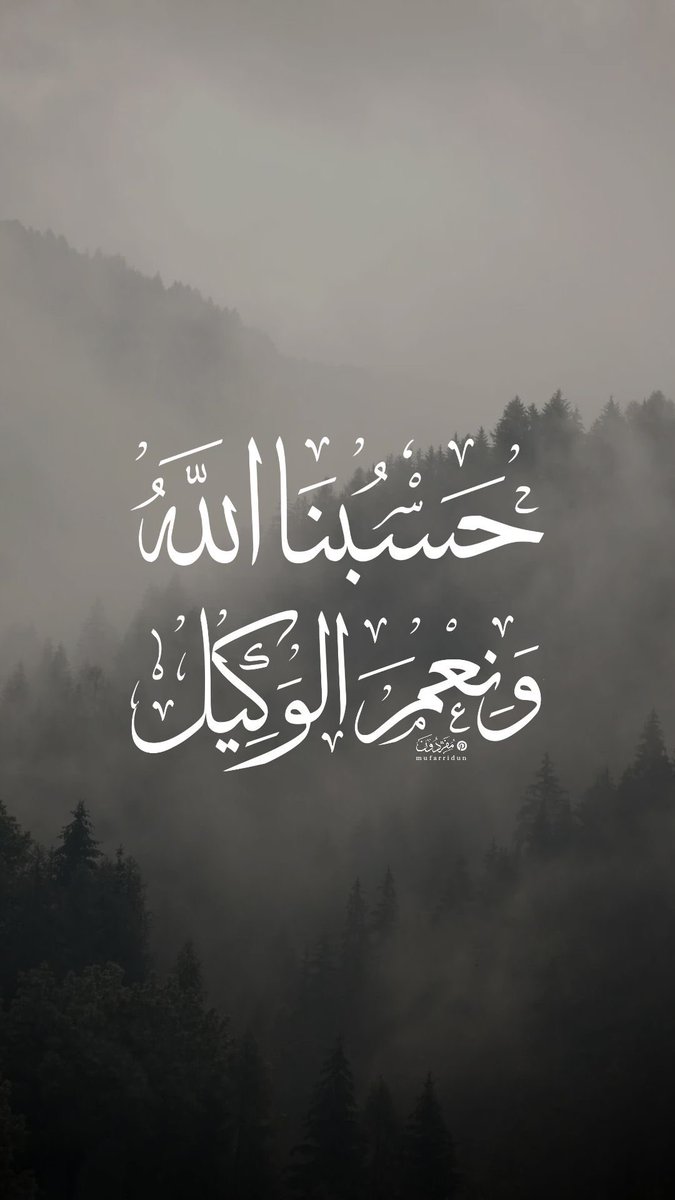 حَسْبُنَا اللَّهُ
وَنِعْمَ الْوَكِيلُ
مُفَرِّدُونَ
mufarridun